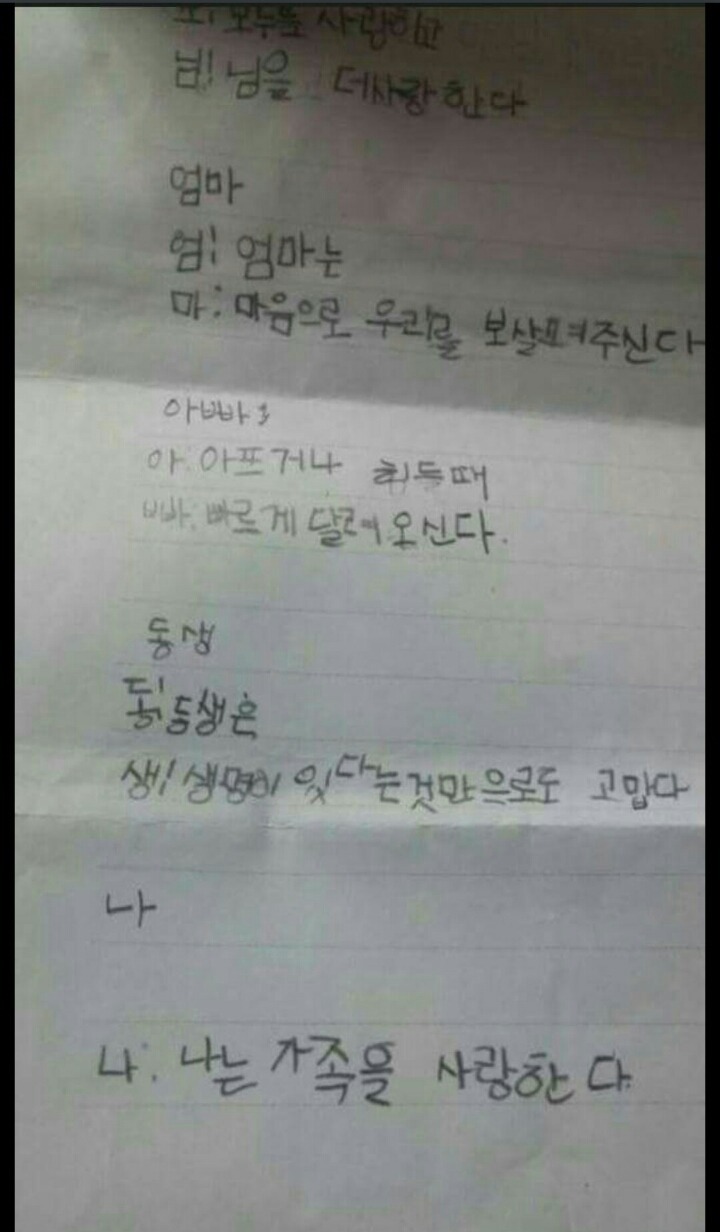 모두를 사랑하고
님! 님을 더사랑한다
엄마
엄! 엄마는
마: 마음으로 우리를 보살펴주신다
아빠:
아: 아프거나 힘들때
빠: 빠르게 달려오신다.
동생
동! 동생은
생! 생명이 있다는것만으로도 고맙다
나
나: 나는 가족을 사랑한다